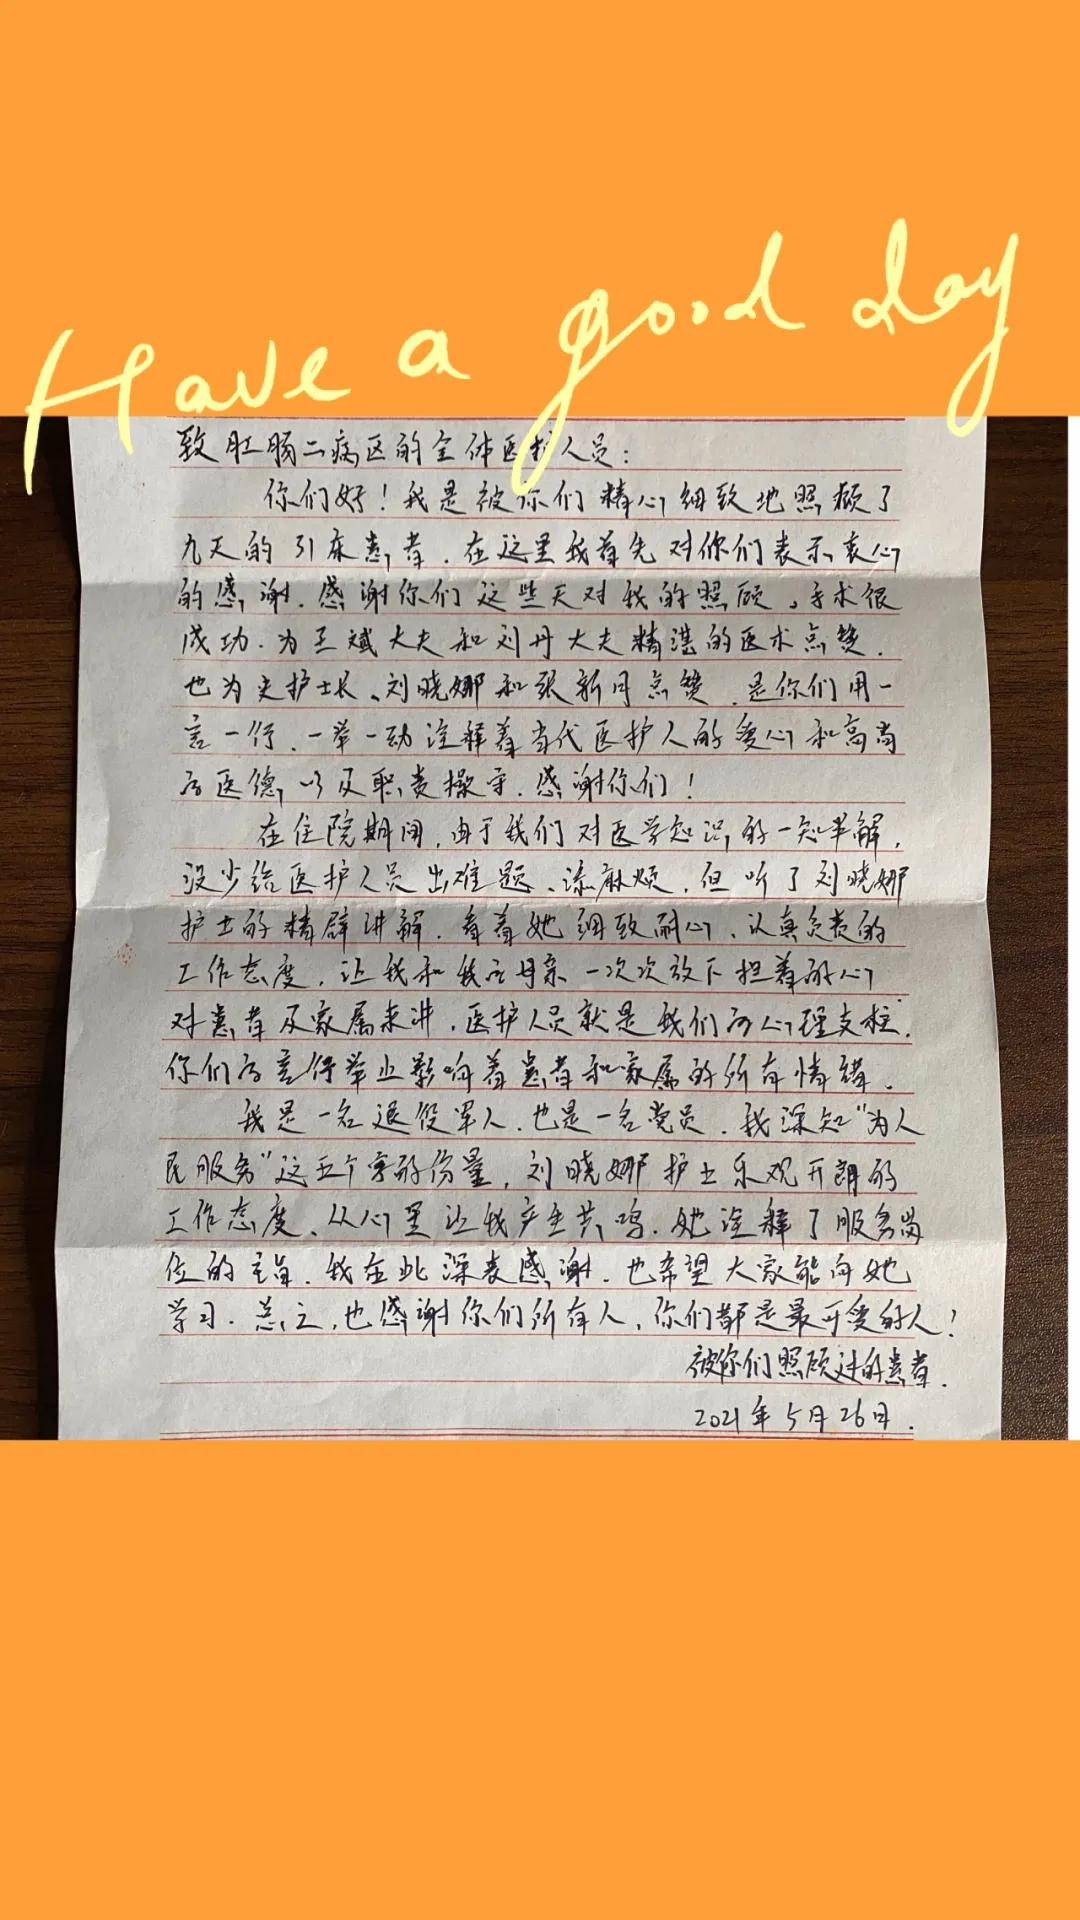 Have a good day
致肛肠二病区的全体医护人员：
你们好！我是被你们精心细致地照顾了
九天的31床患者．在这里我首先对你们表示衷心
的感谢．感谢你们这些天对我的照顾，手术很
成功．为王斌大夫和刘丹大夫精湛的医术点赞．
也为史护士长、刘晓娜和张新月点赞．是你们用一
言一行．一举一动注释着当代医护人的爱心和高尚
的医德，以及职责操守．感谢你们！
在住院期间，由于我们对医学知识的一知半解，
没少给医护人员出难题、添麻烦，但听了刘晓娜
护士的精辟讲解．看着她细致耐心、认真负责的
工作态度，让我和我的母亲一次次放下担着的心
对患者及家属来讲．医护人员就是我们的心理支柱．
你们的言行举止影响着患者和家属的所有情绪．
我是一名退役军人．也是一名党员．我深知“为人
民服务”这五个字的份量，刘晓娜护士乐观开朗的
工作态度、从心里让我产生共鸣．她注释了服务岗
位的宗旨．我在此深表感谢．也希望大家能向她
学习．总之，也感谢你们所有人，你们都是最可爱的人！
被你们照顾过的患者．
2021年5月26日．